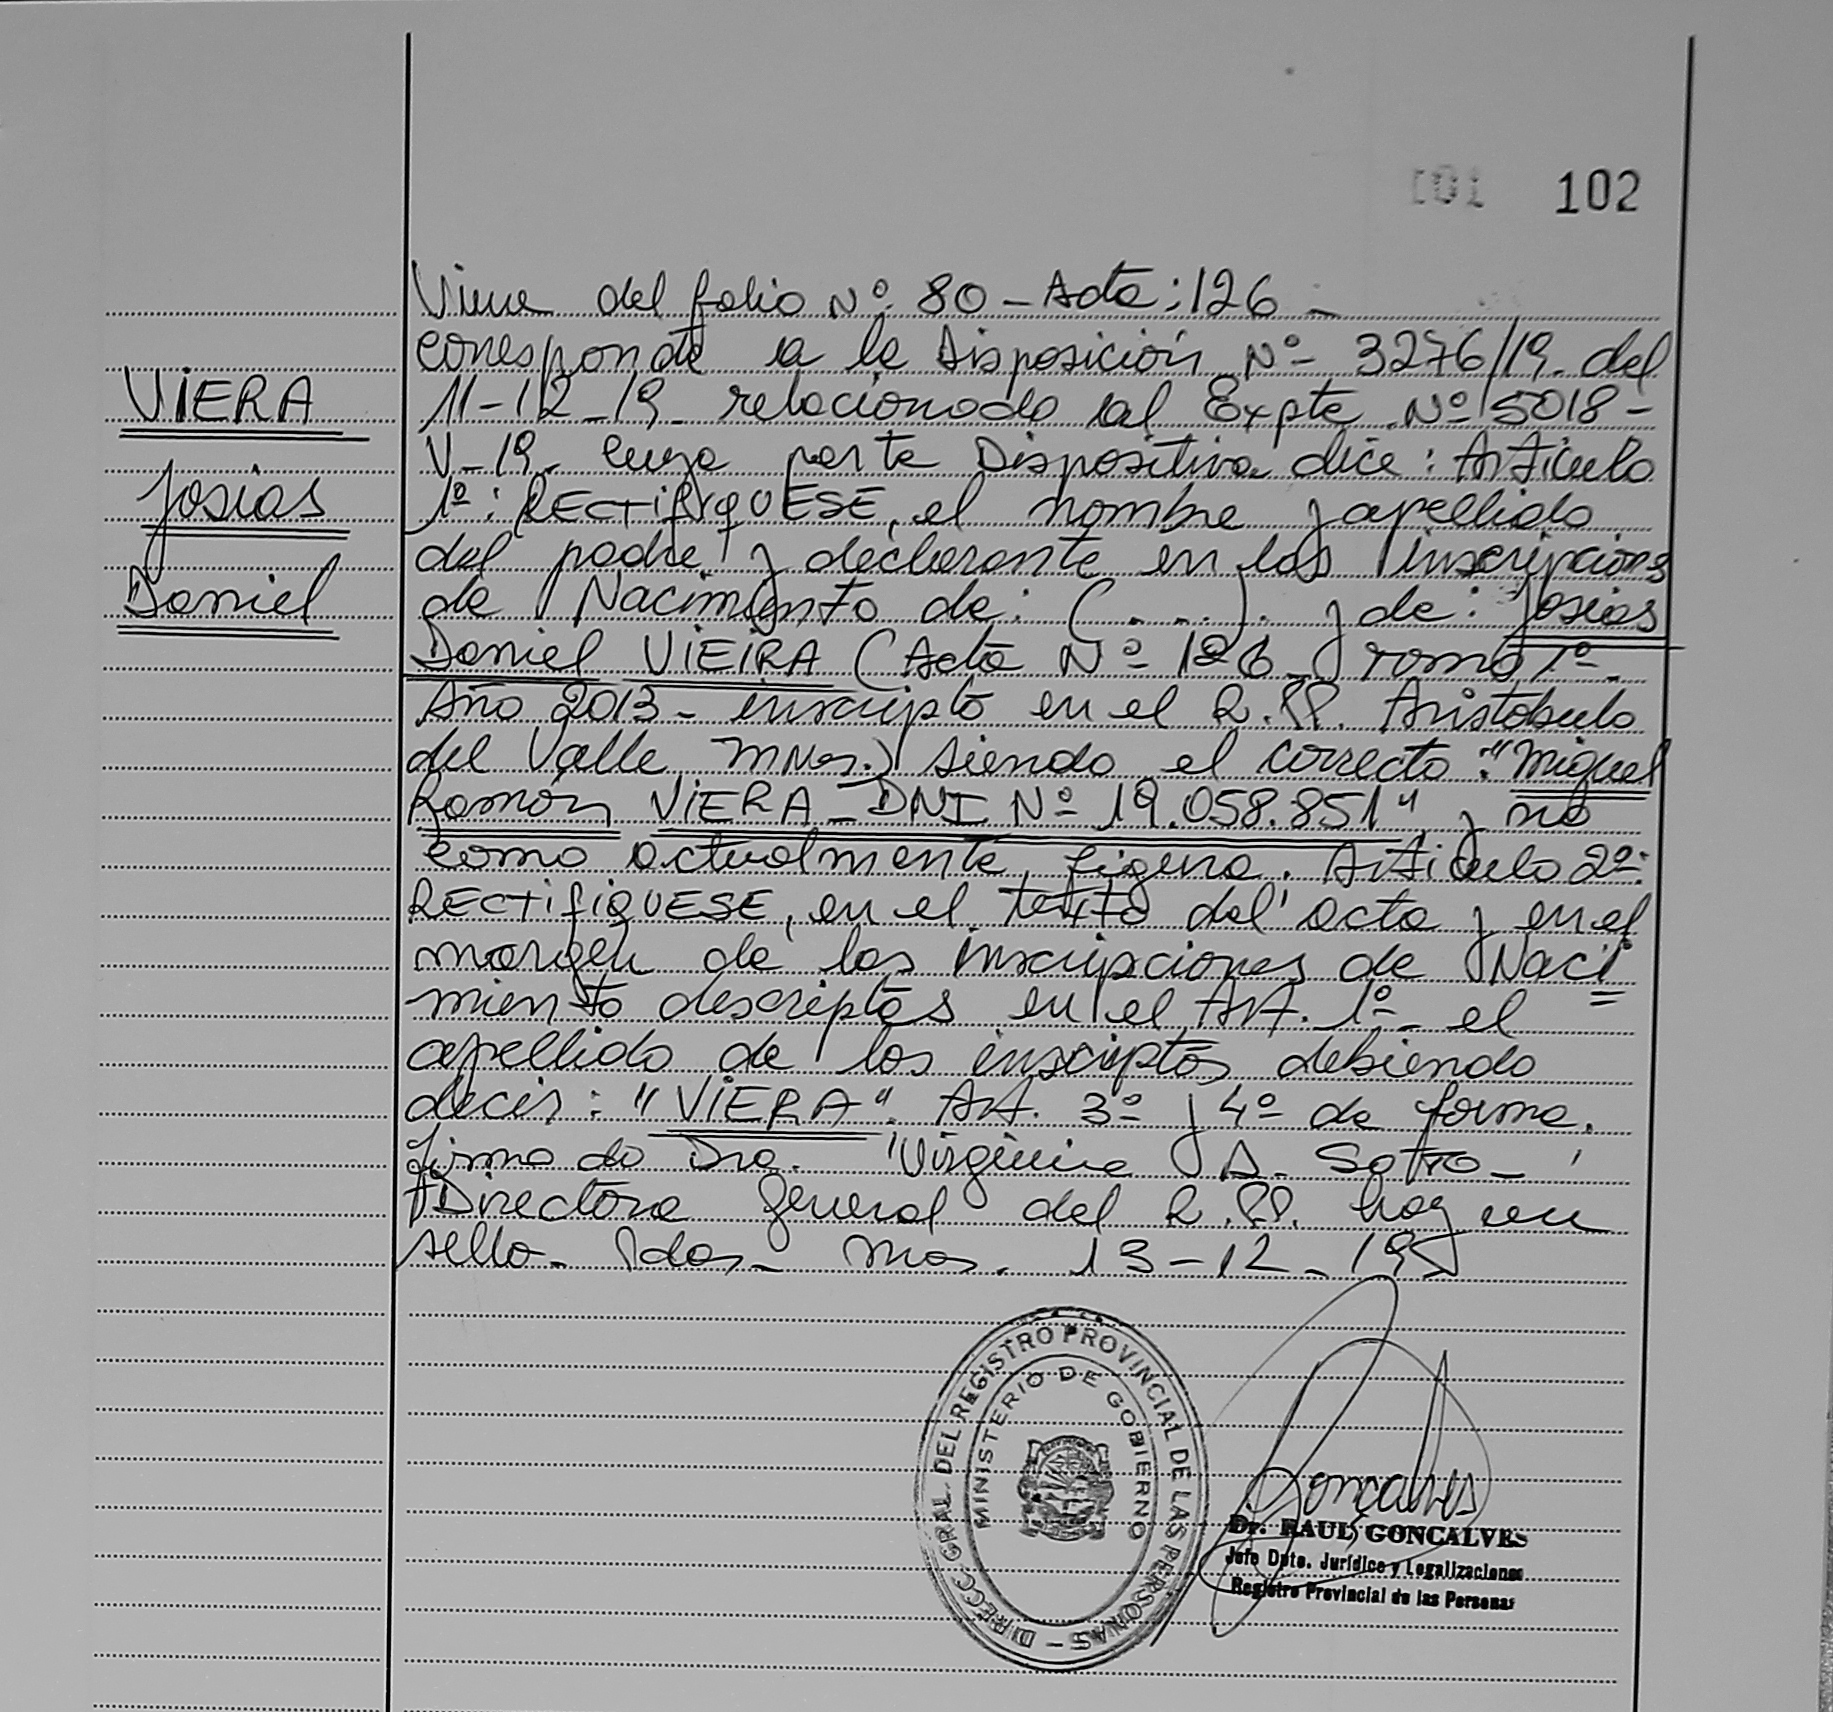 101 102
Viene del folio Nº 80 - Acta: 126 -
corresponde a la Disposición Nº 3276/19. del
VIERA
11-12-19 relacionado al Expte. Nº 5018-
V-19. cuya parte Dispositiva dice: Artículo
Josias
1º: RECTIFIQUESE, el nombre y apellido
del padre y declarante en las inscripciones
Daniel
de Nacimiento de: (....). y de: Josias
Daniel VIEIRA (Acta Nº 126 - Tomo 1º -
Año 2013 - inscripto en el R.PP. Aristobulo
del Valle Mnes.) siendo el correcto: "Miguel
Ramón VIERA - DNI Nº 19.058.851" y no
como actualmente figura. Articulo 2º:
RECTIFIQUESE, en el texto del acta y en el
margen de las inscripciones de Naci=
miento descriptas en el Art. 1º - el
apellido de los inscriptos debiendo
decir: "VIERA". Art. 3º y 4º de forma.
firmado Dra. Virginia A. -
Directora General del R.PP. hay un
sello - Pdas - Mnes. 13-12-19
DIRECC. GRAL. DEL REGISTRO PROVINCIAL DE LAS PERSONAS -
MINISTERIO DE GOBIERNO
Gonçalves
Dr. RAUL GONCALVES
Jefe Dpto. Jurídico y Legalizaciones
Registro Provincial de las Personas